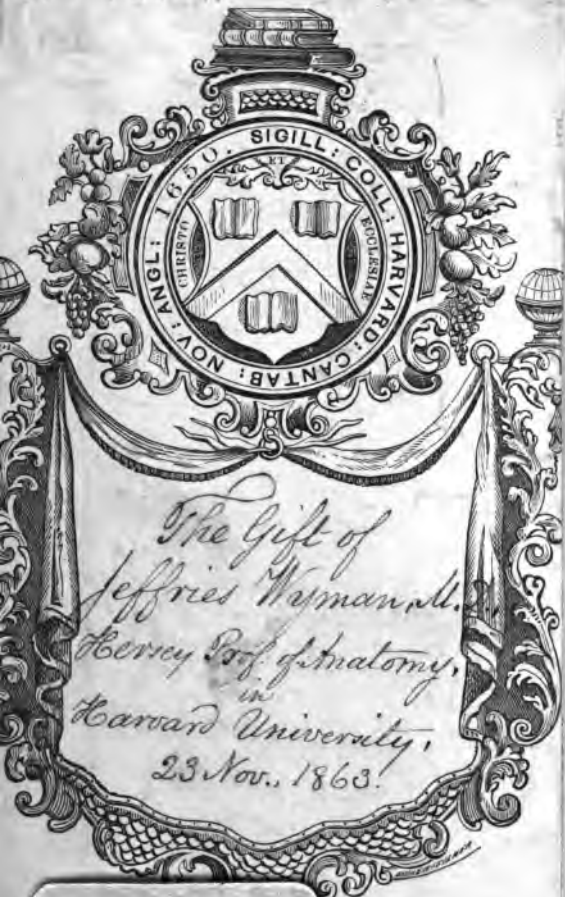 SIGILL: COLL: HARVARD: CANTAB: NOV: ANGL: 1650.
ET
CHRISTO
ECCLESIAE
The Gift of
Jeffries Wyman, M.D.
Hersey Prof. of Anatomy,
in
Harvard University.
23 Nov., 1863.